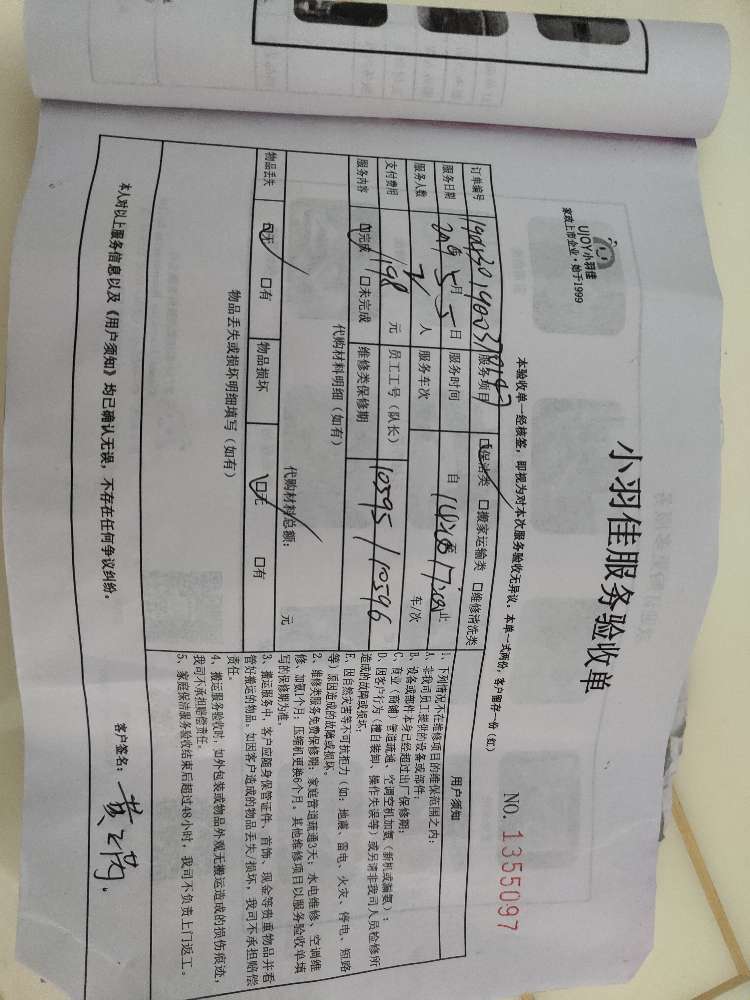 UJOY小羽佳
家政上市企业·始于1999
小羽佳服务验收单
NO. 1355097
本验收单一经核签，即视为对本次服务验收无异议。本单一式两份，客户留存一份（红）
订单编号 服务项目 保洁类 口搬家运输类 口维修清洗类
服务日期 2019年5月5日 服务时间 自 14:20至17:20止
服务人数 2人 服务车次 车/次
支付费用 198元 员工工号（队长） 10595/10596
服务内容 口完成 口未完成 维修类保修期
代购材料明细（如有）
代购材料总额： 元
物品丢失 口无 口有 物品损坏 口无 口有
物品丢失或损坏明细填写（如有）
用户须知
1、下列情况不在维修项目的维保范围之内：
A、非我司员工提供的设备或部件；
B、设备或部件本身已经超过出厂保修期；
C、商业（商铺）管道疏通、空调空机加氨（新机或漏氨）；
D、因客户行为（擅自装卸、操作失误等）或另请非我司人员检修所
造成的故障或损坏；
E、因自然灾害等不可抗拒力（如：地震、雷电、火灾、停电、短路
等）原因造成的故障或损坏。
2、维修类服务免费保修期：家庭管道疏通3天；水电维修、空调维
修、加氨1个月；压缩机更换6个月，其他维修项目以服务验收单填
写的保修期为准。
3、搬运服务中，客户应随身保管证件、首饰、现金等贵重物品并看
管好搬运的物品，如因客户造成的物品丢失/损坏，我司不承担赔偿
责任。
4、搬运服务验收时，如外包装或物品外观无搬运造成的损伤痕迹，
我司不承担赔偿责任。
5、家庭保洁服务验收结束后超过48小时，我司不负责上门返工。
本人对以上服务信息以及《用户须知》均已确认无误，不存在任何争议纠纷。
客户签名：